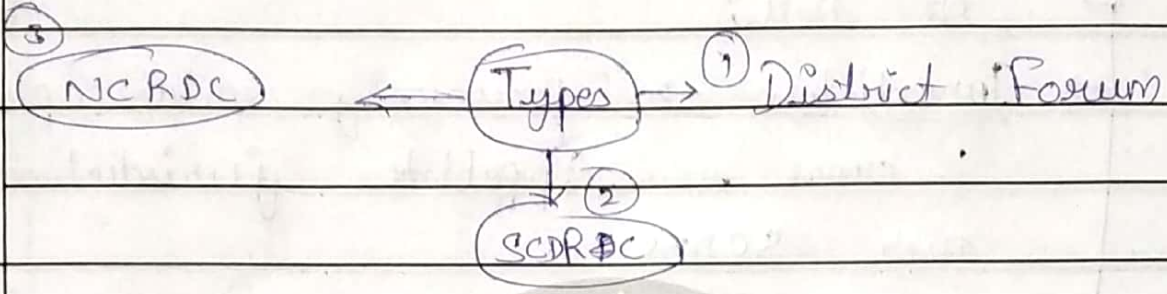 ③
NCRDC ← Types → ① District Forum
②
SCDRDC